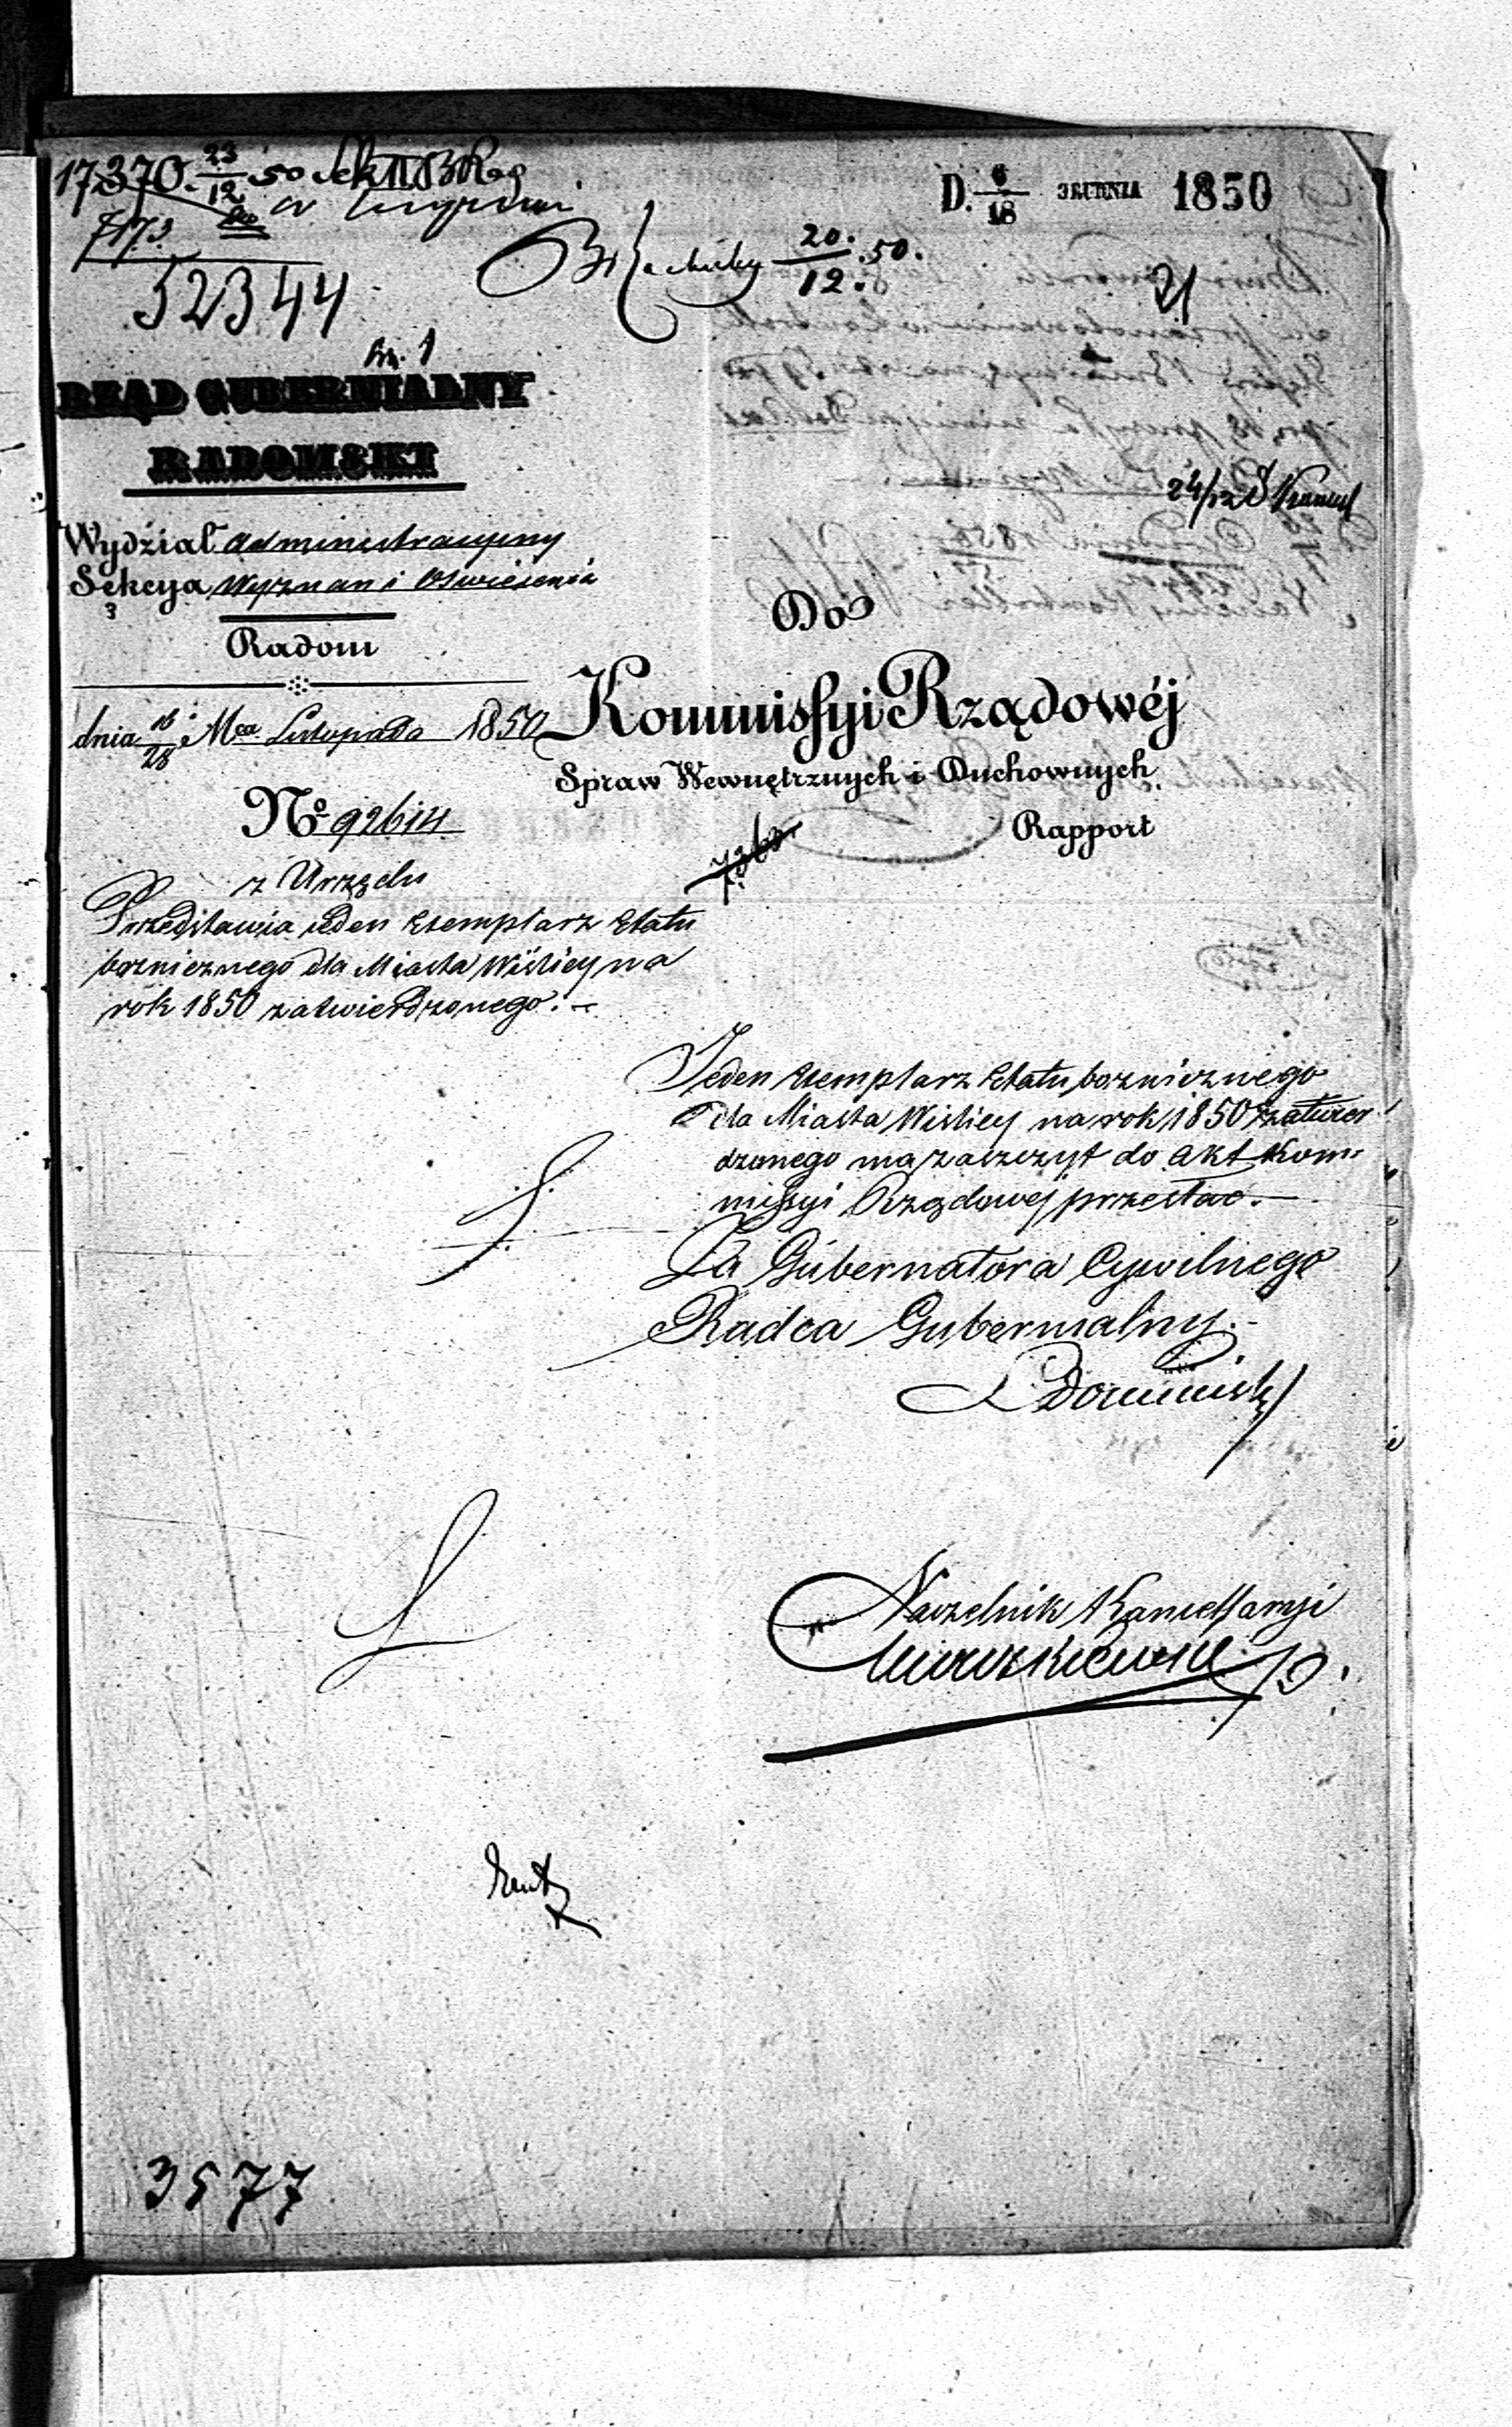 17370. 23/12 50
7173.
52344
D. 6/18 GRUDNIA 1850
20/12. 50.
21
RZĄD GUBERNIALNY
RADOMSKI
24/12
Wydział Administracyjny
Sekcya Wyznan i Oswiecenia
3
Radom
dnia 16/28 Mca Listopada 1850
No 92614
Do
Kommissyi Rządowéj
Spraw Wewnętrznych i Duchownych
Rapport
z Urzędu
Przedstawia ieden exemplarz Etatu
bożnicznego dla Miasta Wiślicy na
rok 1850 zatwierdzonego. —
Jeden exemplarz Etatu bożnicznego
dla Miasta Wislicy na rok 1850 zatwier
dzonego ma zaszczyt do akt Kom-
missyi Rządowej przesłać. —
Za Gubernatora Cywilnego
Radca Gubernialny.
Naczelnik Kancellaryi
3577